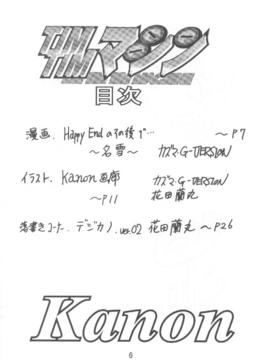 TIMTIMマシン
目次
漫画. Happy Endのその後で… 〜P7
〜名雪〜 カズマ・G-VERSION
イラスト. Kanon画廊 カズマ・G-VERSION
〜P11 花田蘭丸
落書きコーナー. デジカノ. ver.02 花田蘭丸 〜P26
Kanon
6